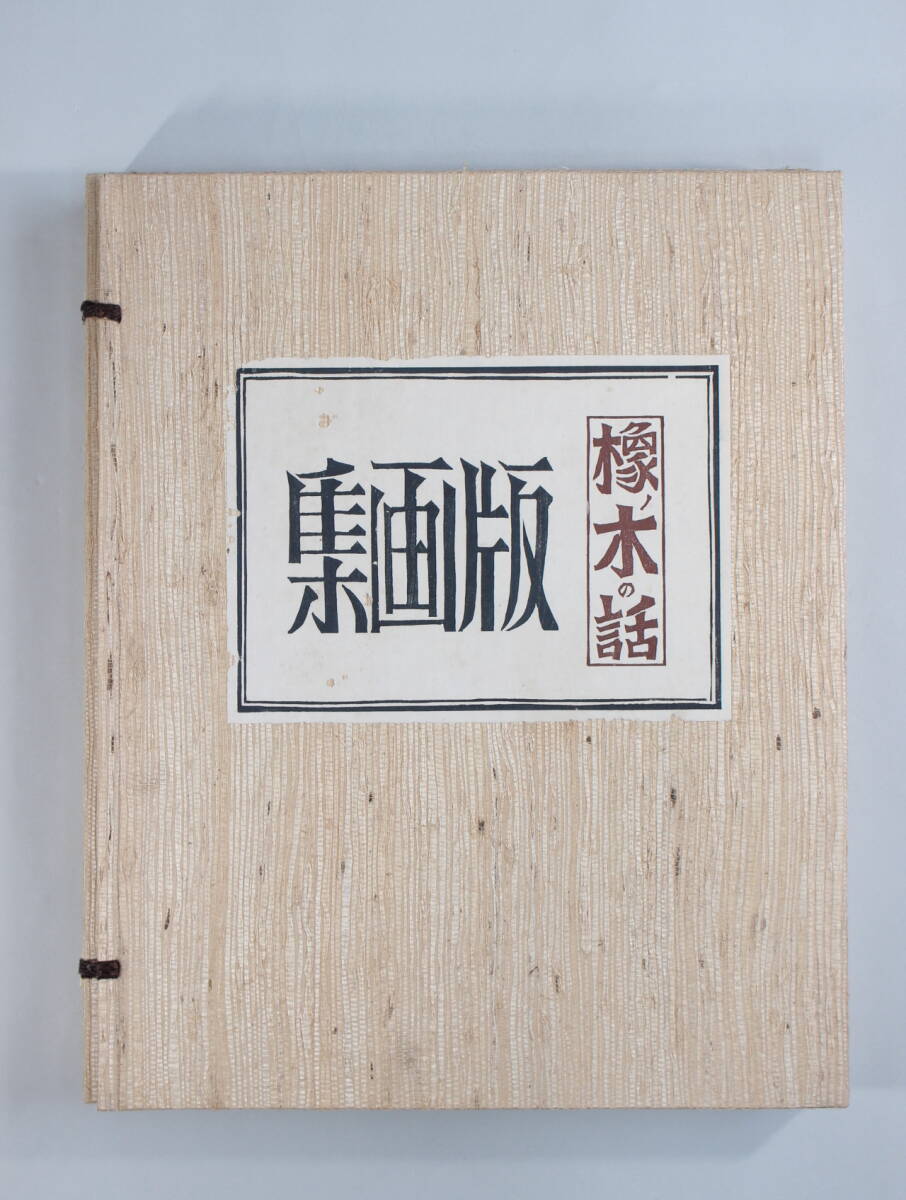 橡ノ木の話
版画集